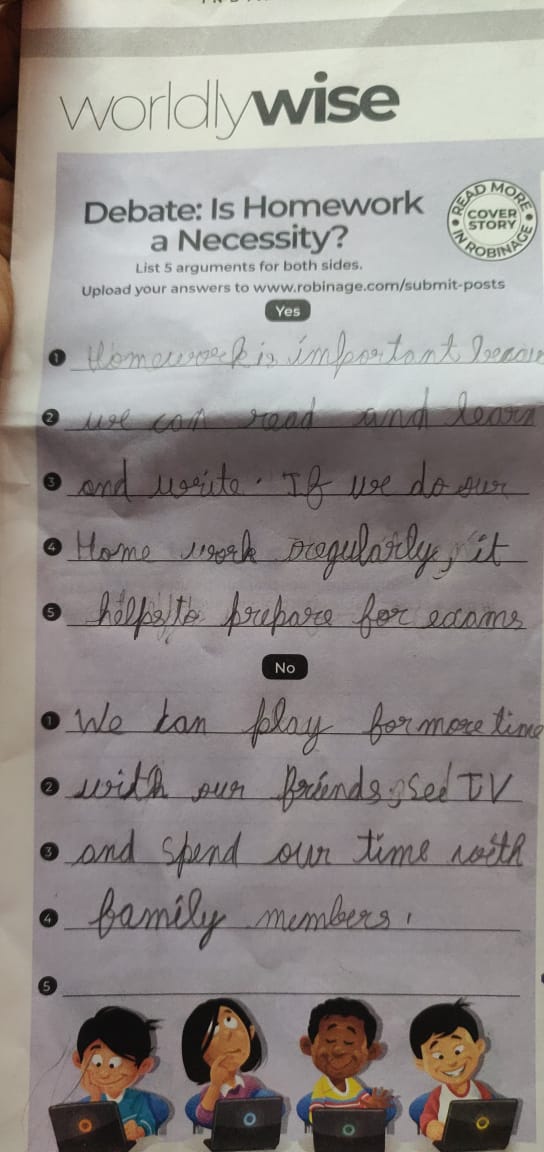 worldlywise
Debate: Is Homework
a Necessity?
READ MORE
COVER
STORY
IN ROBINAGE
List 5 arguments for both sides.
Upload your answers to www.robinage.com/submit-posts
Yes
1 Homework is important
2 we can read and learn
3 and write. If we do our
4 Home work regularly, it
5 helps to prepare for exams
No
1 We can play for more time
2 with our friends, see TV
3 and spend our time with
4 family members.
5